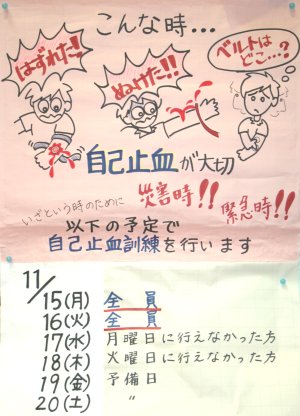 こんな時…
はずれた!!
ぬけた!!
ベルトは
どこ…?
自己止血が大切
いざという時のために
災害時!!
緊急時!!
以下の予定で
自己止血訓練を行います
11/15(月) 全員
16(火) 全員
17(水) 月曜日に行えなかった方
18(木) 火曜日に行えなかった方
19(金) 予備日
20(土) 〃